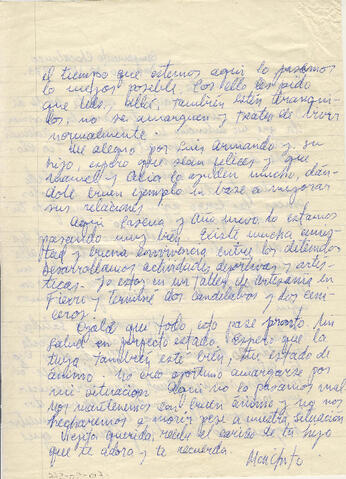 el tiempo que estemos aquí lo pasamos
lo mejor posible. Por ello les pido
que Uds, allá, también estén tranqui-
los, no se amarguen y traten de vivir
normalmente.
Me alegro por Luis Armando y su
hijo, espero que sean felices y que
Manuel y Alicia lo ayuden mucho, dán-
dole buen ejemplo en base a mejorar
sus relaciones
Aquí Pascua y Año nuevo lo estamos
pasando muy bien. Existe mucha amis-
tad y buena convivencia entre los detenidos
Desarrollamos actividades deportivas y artís-
ticas. Yo estoy en un Taller de Artesanía en
Fierro y terminé dos candelabros y dos ceni-
ceros!
Ojalá que todo esto pase pronto. Mi
salud en perfecto estado. Espero que la
tuya también esté bien, tu estado de
ánimo. No creo oportuno amargarse por
mi situación. Aquí no lo pasamos mal
nos mantenemos con buen ánimo y no nos
echaremos a morir pese a nuestra situación
Viejita querida, recibe el cariño de tu hijo
que te adora y te recuerda.